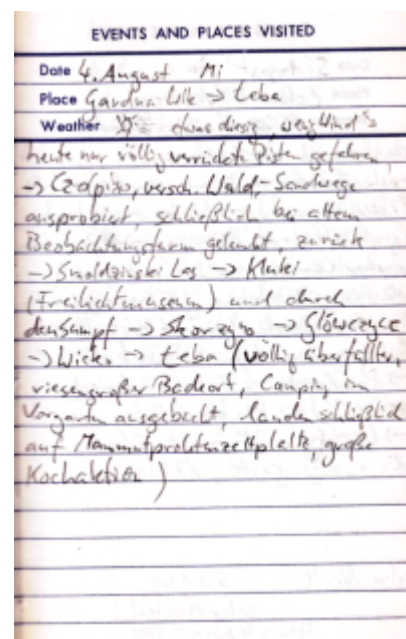 EVENTS AND PLACES VISITED
Date 4. August Mi
Place Gardna Wlk → Łeba
Weather etwas diesig, wenig Wind
heute nur völlig verrückte Pisten gefahren,
→ Czołpino, versch. Wald-Sandwege
ausprobiert, schließlich bei altem
Beobachtungsturm gelandet, zurück
→ Smołdziński Las → Kluki
(Freilichtmuseum) und durch
den Sumpf → Skorzyno → Główczyce
→ Wicko → Łeba (völlig überfüllter,
riesengroßer Badeort, Camping im
Vorgarten ausgebucht, landen schließlich
auf Mammutprolétenzeltplatte, große
Kochaktion)